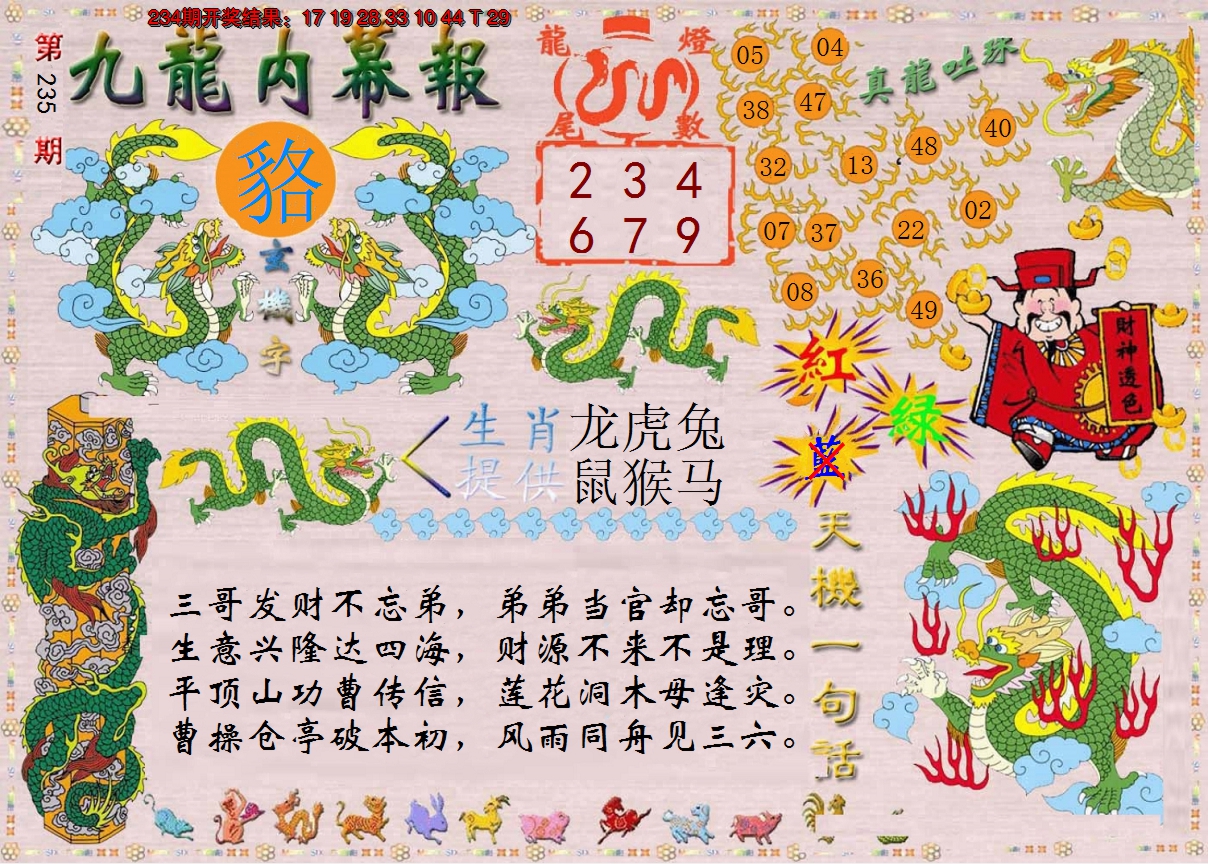 234期开奖结果：17 19 28 33 10 44 T 29
第235期
九龍内幕報
貉
玄機字
龍燈
尾數
2 3 4
6 7 9
真龍吐珠
05 04
38 47
32 13 48 40
07 37 22 02
08 36 49
紅
綠
藍
財神透色
生肖提供
龙虎兔
鼠猴马
天機一句話
三哥发财不忘弟，弟弟当官却忘哥。
生意兴隆达四海，财源不来不是理。
平顶山功曹传信，莲花洞木母逢灾。
曹操仓亭破本初，风雨同舟见三六。